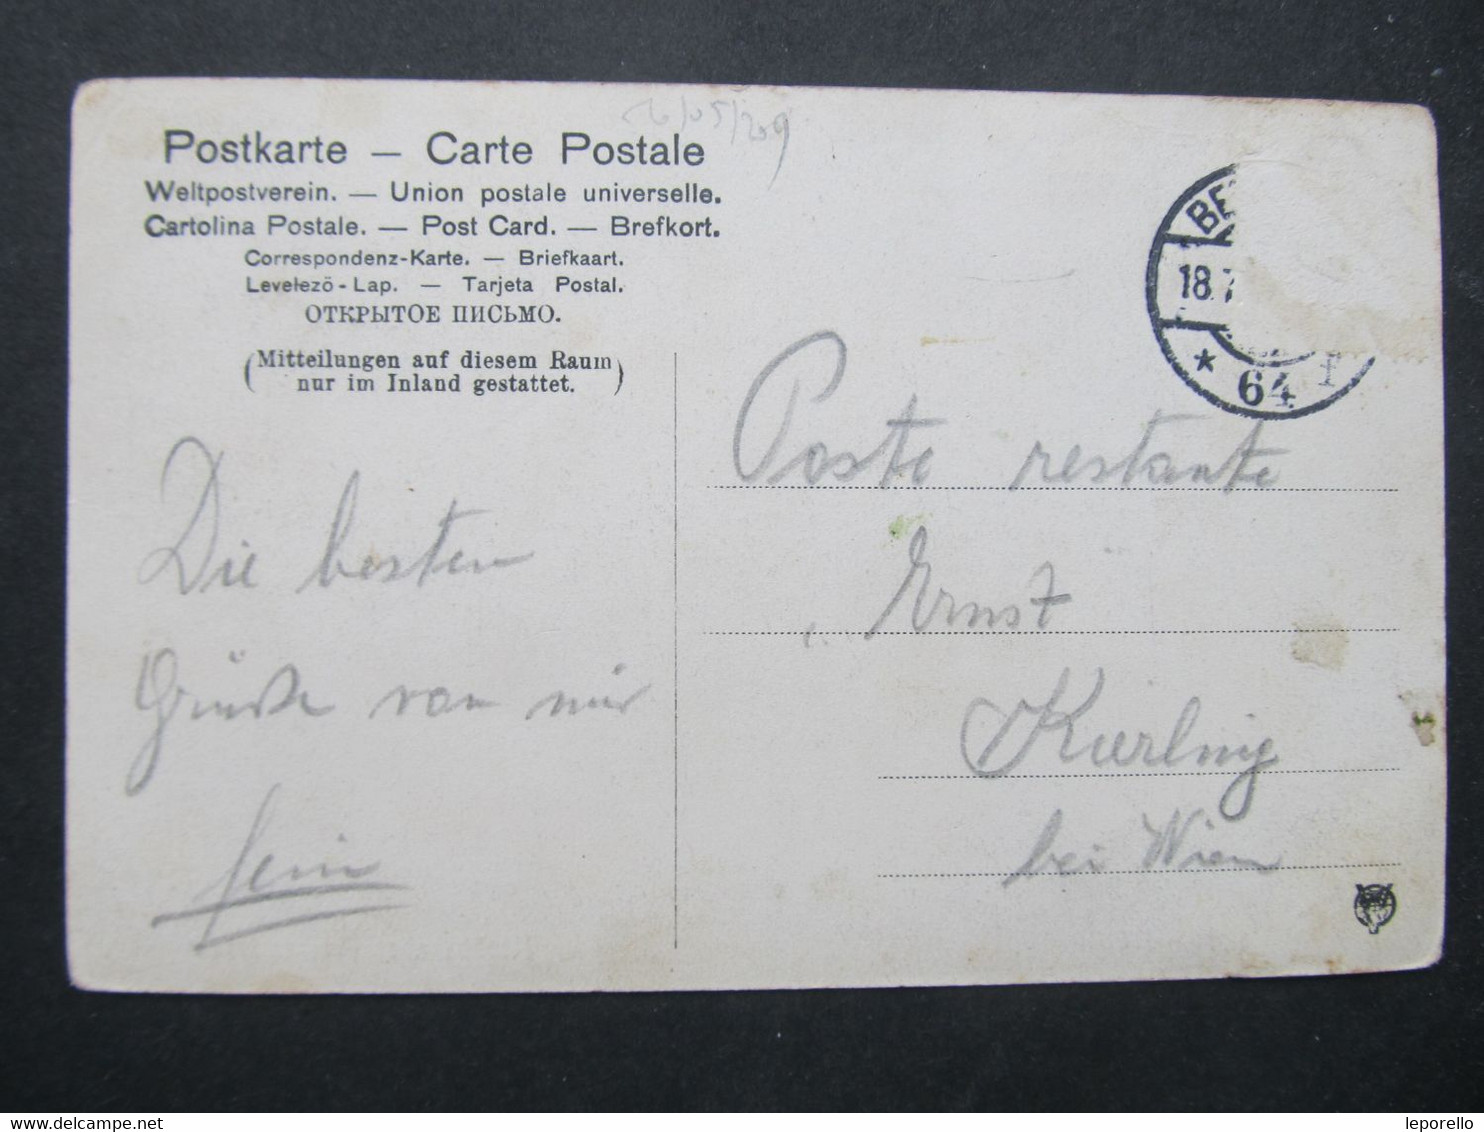 Postkarte — Carte Postale
Weltpostverein. — Union postale universelle.
Cartolina Postale. — Post Card. — Brefkort.
Correspondenz-Karte. — Briefkaart.
Levelező-Lap. — Tarjeta Postal.
ОТКРЫТОЕ ПИСЬМО.
(Mitteilungen auf diesem Raum
nur im Inland gestattet.)
BE
18.7
* 64 f
Die besten
Grüße von mir
Poste restante
Ernst
Kierling
bei Wien
www.delcampe.net
leporello